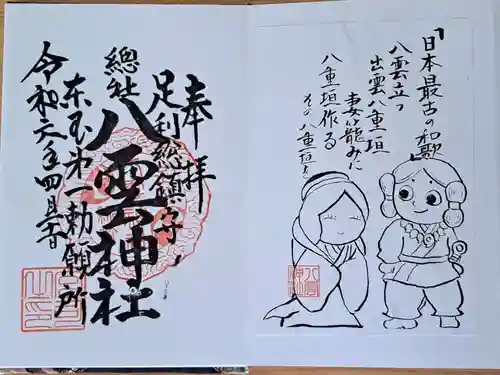 奉拝
足利総鎮守
總社
八雲神社
東国第一勅願所
令和六年四月
「日本最古の和歌」
八雲立つ
出雲八重垣
妻籠みに
八重垣作る
その八重垣を